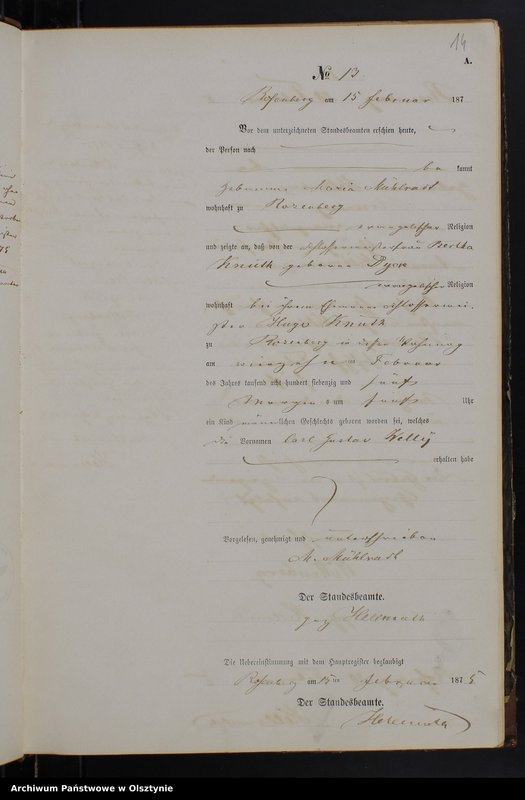 14
A.
№ 13
Rosenberg am 15 Februar 187
Vor dem unterzeichneten Standesbeamten erschien heute,
der Person nach
be kannt
Hebamme Maria Mühlradt
wohnhaft zu Rosenberg
evangelischer Religion
und zeigte an, daß von der Schlossermeisterfrau Bertha
Knuth geborene Dyck
evangelischer Religion
wohnhaft bei ihrem Ehemann Schlossermei-
ster Hugo Knuth
zu Rosenberg in dessen Wohnung
am vierzehn ten Februar
des Jahres tausend acht hundert siebenzig und fünf
Morgens um fünf Uhr
ein Kind männlichen Geschlechts geboren worden sei, welches
die Vornamen Carl Gustav Willy
erhalten habe
Vorgelesen, genehmigt und unterschrieben
M. Mühlradt
Der Standesbeamte.
gez
Die Uebereinstimmung mit dem Hauptregister beglaubigt
Rosenberg am 15ten Februar 187 5
Der Standesbeamte.
Archiwum Państwowe w Olsztynie